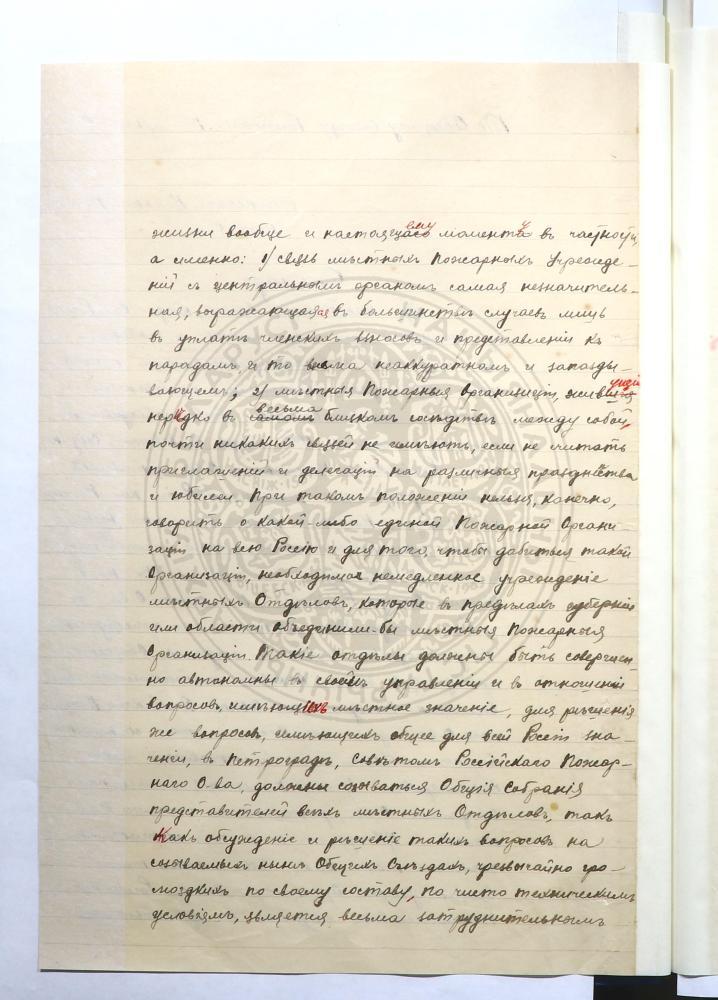 жизни вообще и настоящему моменту въ частности,
а именно: 1/ связь мѣстныхъ Пожарныхъ Учрежде-
ній съ центральнымъ органомъ самая незначитель-
ная, выражающаяся въ большинствѣ случаевъ лишь
въ уплатѣ членскихъ взносовъ и представленіи къ
наградамъ и то весьма неаккуратномъ и запазды-
вающемъ; 2/ мѣстныя Пожарныя Организаціи, живущія
нерѣдко въ весьма близкомъ сосѣдствѣ между собой,
почти никакихъ связей не имѣютъ, если не считать
приглашеній и делегацій на различныя празднества
и юбилеи. При такомъ положеніи нельзя, конечно,
говорить о какой-либо единой Пожарной Органи-
заціи на всю Россію и для того, чтобы добиться такой
Организаціи, необходимое немедленное учрежденіе
мѣстныхъ Отдѣловъ, которые въ предѣлахъ губерніи
или области объединили-бы мѣстныя Пожарныя
Организаціи. Такіе отдѣлы должны быть совершен-
но автономны въ своемъ управленіи и въ отношеніи
вопросовъ, имѣющихъ мѣстное значеніе, для рѣшенія
же вопросовъ, имѣющихъ общее для всей Россіи зна-
ченіе, въ Петроградѣ, Совѣтомъ Россійскаго Пожар-
наго О-ва, должны созываться Общія Собранія
представителей всѣхъ мѣстныхъ Отдѣловъ, такъ
какъ обсужденіе и рѣшеніе такихъ вопросовъ на
созываемыхъ нынѣ Общихъ Съѣздахъ, чрезвычайно гро-
моздкихъ по своему составу, по чисто техническимъ
условіямъ, является весьма затруднительнымъ